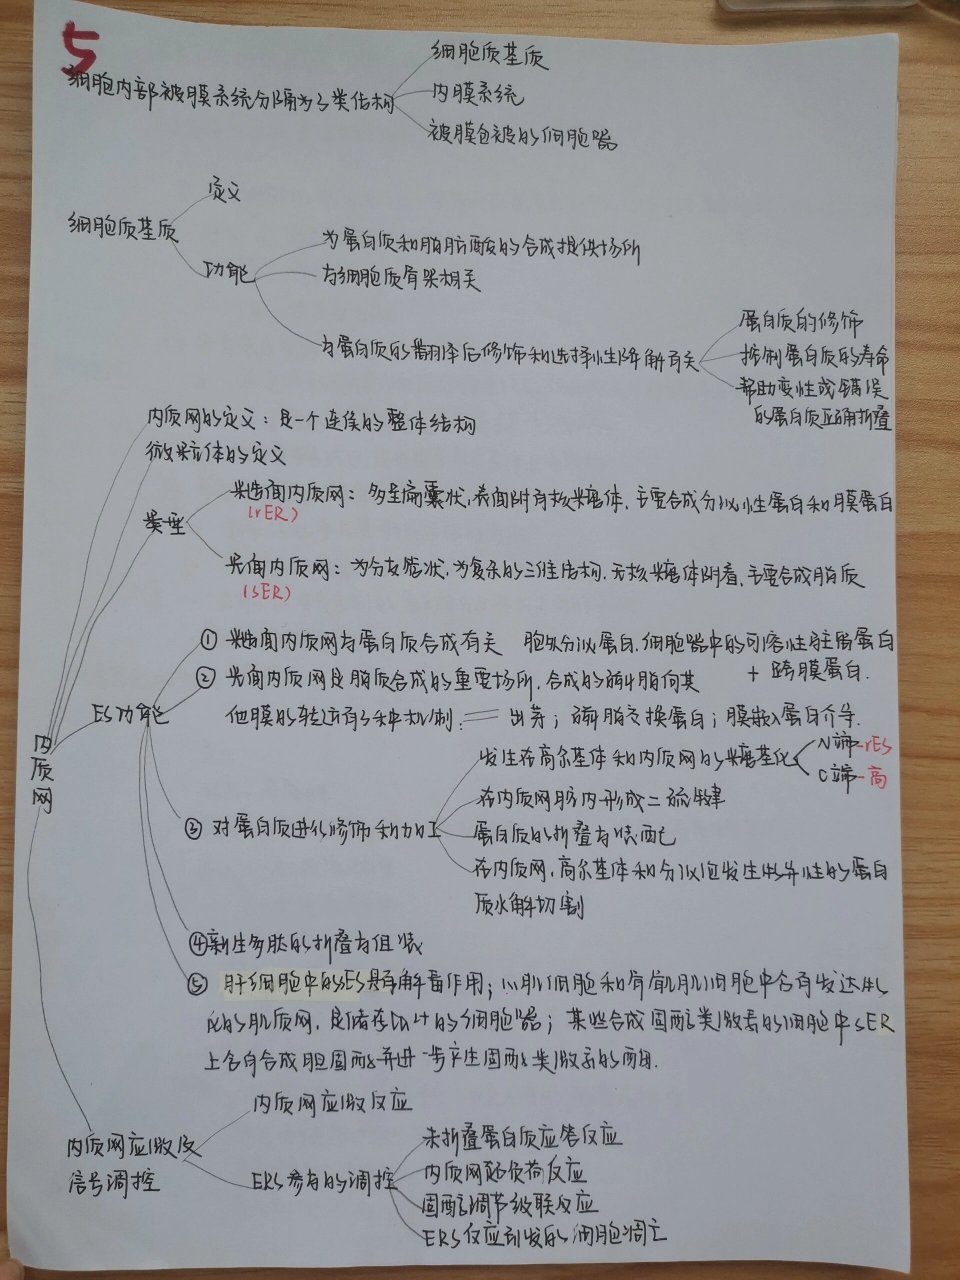 5
细胞质基质
细胞内部被膜系统分隔为3类结构
内膜系统
被膜包被的细胞器
定义
细胞质基质
功能
为蛋白质和脂肪酸的合成提供场所
与细胞质骨架相关
与蛋白质的翻译后修饰和选择性降解有关
蛋白质的修饰
控制蛋白质的寿命
帮助变性或错误
的蛋白质正确折叠
内质网
内质网的定义：是一个连续的整体结构
微粒体的定义
类型
糙面内质网：多呈扁囊状，表面附有核糖体，主要合成分泌性蛋白和膜蛋白
(rER)
光面内质网：为分支管状，为复杂的三维结构，无核糖体附着，主要合成脂质
(sER)
ES功能
① 糙面内质网与蛋白质合成有关 胞外分泌蛋白，细胞器中的可溶性驻留蛋白
+ 跨膜蛋白.
② 光面内质网是脂质合成的重要场所，合成的磷脂向其
他膜的转运有3种机制： 出芽；磷脂交换蛋白；膜嵌入蛋白介导.
③ 对蛋白质进行修饰和加工
发生在高尔基体和内质网的糖基化
N端-rES
C端-高
在内质网腔内形成二硫键
蛋白质的折叠与装配
在内质网，高尔基体和分泌泡发生特异性的蛋白
质水解切割
④新生多肽的折叠与组装
⑤ 肝细胞中的sES具有解毒作用；心肌细胞和骨骼肌细胞中含有发达特
化的肌质网，是储存Ca²⁺的细胞器；某些合成固醇类激素的细胞中sER
上含有合成胆固醇并进一步产生固醇类激素的酶.
内质网应激及
信号调控
内质网应激反应
ERS参与的调控
未折叠蛋白质应答反应
内质网超负荷反应
固醇调节级联反应
ERS反应引发的细胞凋亡